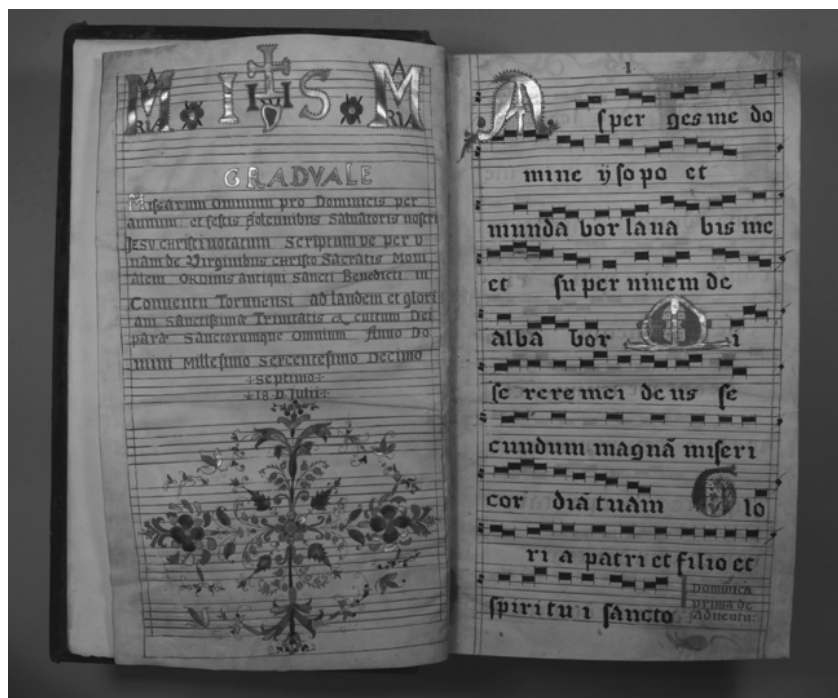 MARIA · IHS · MARIA
GRADVALE
Missarum Omnium pro Dominicis per
annum et festis Solennibus Salvatoris nostri
JESV Christi notatum Scriptumve per v
nam de Virginibus Christo Sacratis Moni
alem Ordinis antiqui Sancti Benedicti in
Conventu Torunensi ad laudem et glori
am Sanctissimæ Trinitatis & cultum Dei
paræ Sanctorumque Omnium Anno Do
mini Millesimo Sexcentesimo Decimo
+septimo+
+18 D Julii+
I
A sper ges me do
mine ÿsopo et
mundabor lava bis me
et super nivem de
alba bor Mi
serere mei deus se
cundum magnã miseri
cor diã tuam Glo
ri a patri et filio et
spiritu i sancto
Dominica
prima de
Adventu.